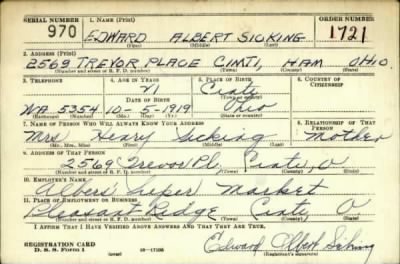 SERIAL NUMBER 1. NAME (Print) ORDER NUMBER
970 EDWARD ALBERT SICKING 1721
(First) (Middle) (Last)
2. ADDRESS (Print)
2569 TREVOR PLACE CINTI, HAM OHIO
(Number and street or R. F. D. number) (Town) (County) (State)
3. TELEPHONE 4. AGE IN YEARS 5. PLACE OF BIRTH 6. COUNTRY OF CITIZENSHIP
21 Cinti
(Town or county)
DATE OF BIRTH
WA 5354 10-5-1919 Ohio
(Exchange) (No.) (Mo.) (Day) (Yr.) (State or country)
7. NAME OF PERSON WHO WILL ALWAYS KNOW YOUR ADDRESS 8. RELATIONSHIP OF THAT PERSON
Mrs Henry Sicking Mother
(Mr., Mrs., Miss) (First) (Middle) (Last)
9. ADDRESS OF THAT PERSON
2569 Trevor Pl. Cinti, O
(Number and street or R. F. D. number) (Town) (County) (State)
10. EMPLOYER'S NAME
Albers Super Market
11. PLACE OF EMPLOYMENT OR BUSINESS
Pleasant Ridge Cinti, O
(Number and street or R. F. D. number) (Town) (County) (State)
I AFFIRM THAT I HAVE VERIFIED ABOVE ANSWERS AND THAT THEY ARE TRUE.
REGISTRATION CARD
D. S. S. Form 1 Edward Albert Sicking
(Registrant's signature)